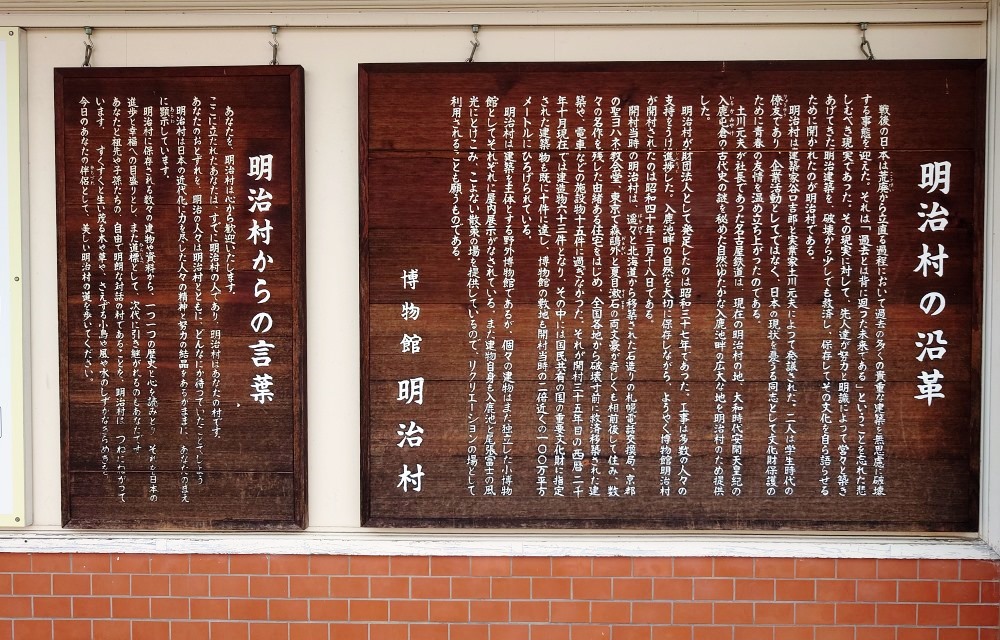 明治村の沿革
戦後の日本は荒廃から立直る過程において過去の多くの貴重な建築を無思慮に破壊
する事態を迎えた。それは「過去とは背に廻った未来である」ということを忘れた悲
しむべき現実であった。その現実に対して、先人達が努力と明識によって営々と築き
あげてきた明治建築を、破壊から少しでも救済し、保存してその文化を自ら語らせる
ために開かれたのが明治村である。
明治村は建築家谷口吉郎と実業家土川元夫によって発議された。二人は学生時代の
僚友であり、企業活動としてではなく、日本の現状を憂うる同志として文化財保護の
ために青春の友情を温め立ち上がったのである。
土川元夫が社長であった名古屋鉄道は、現在の明治村の地、大和時代安閑天皇紀の
入鹿屯倉の古代史の謎を秘めた自然ゆたかな入鹿池畔の広大な地を明治村のため提供
した。
明治村が財団法人として発足したのは昭和三十七年であった。工事は多数の人々の
支持をうけ進捗した。入鹿池畔の自然を大切に保存しながら、ようやく博物館明治村
が開村されたのは昭和四十年三月十八日である。
開村当時の明治村は、遙々と北海道から移築された石造りの札幌電話交換局、京都
の聖ヨハネ教会堂、東京で森鴎外と夏目漱石の両文豪が奇しくも相前後して住み、数
々の名作を残した由緒ある住宅をはじめ、全国各地から破壊寸前に救済移築された建
築や、電車などの施設物十五件に過ぎなかった。それが開村三十五年目の西暦二千
年十月現在では建造物六十三件となり、その中には国民共有の国の重要文化財に指定
された建築物も既に十件に達し、博物館の敷地も開村当時の二倍近くの一〇〇万平方
メートルにひろげられている。
明治村は建築を主体とする野外博物館であるが、個々の建物はまた独立した小博物
館としてそれぞれに屋内展示がなされている。また建物自身も入鹿池と尾張富士の風
光にとけこみ、こよない散策の場を提供しているので、リクリエーションの場として
利用されることも願うものである。
博物館 明治村
明治村からの言葉
あなたを、明治村は心から歓迎いたします。
ここに立たれたあなたは、すでに明治村の人であり、明治村はあなたの村です。
あなたのおとずれを、明治の人々は明治村とともに、どんなにか待っていたことでしょう
明治村は日本の近代化に力を尽した人々の精神と努力の結晶をあるがままに、あなたの目のまえ
に顕示しています。
明治村に保存される数々の建物や資料から、一つ一つの歴史と心を読みとり、それを日本の
進歩と幸福への目盛りとし、また道標として、次代に引き継がれるのもあなたです
あなたと祖先や子孫たちの、自由で明朗な対話の村であることを、明治村は、つねにねがって
います。すくすくと生い茂る木や草や、さえずる小鳥や風や水のしずかなきらめきも、
今日のあなたの伴侶として、美しい明治村の道を歩いてください。